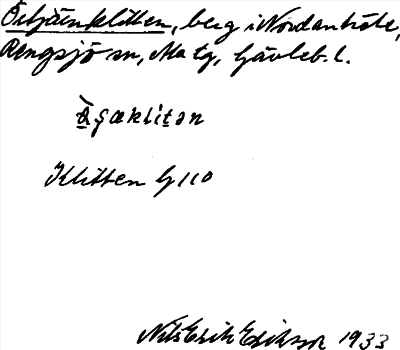 Östjärnklitten, berg i Nordanhöle,
Rengsjö sn, Ma tg, Gävleb. l.
Klitten G 110
Nils Erik Eriksson 1933